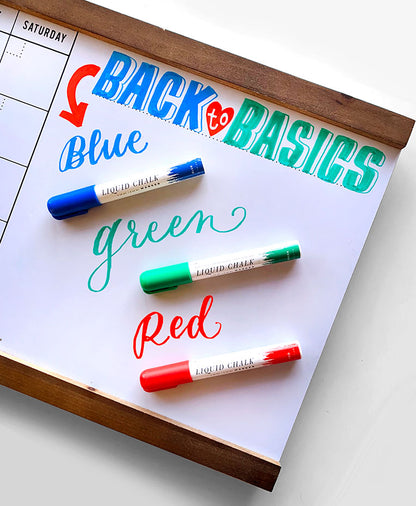 SATURDAY
BACK to BASICS
Blue
LIQUID CHALK
MARKER
green
LIQUID CHALK
Red
LIQUID CHALK
MARKER